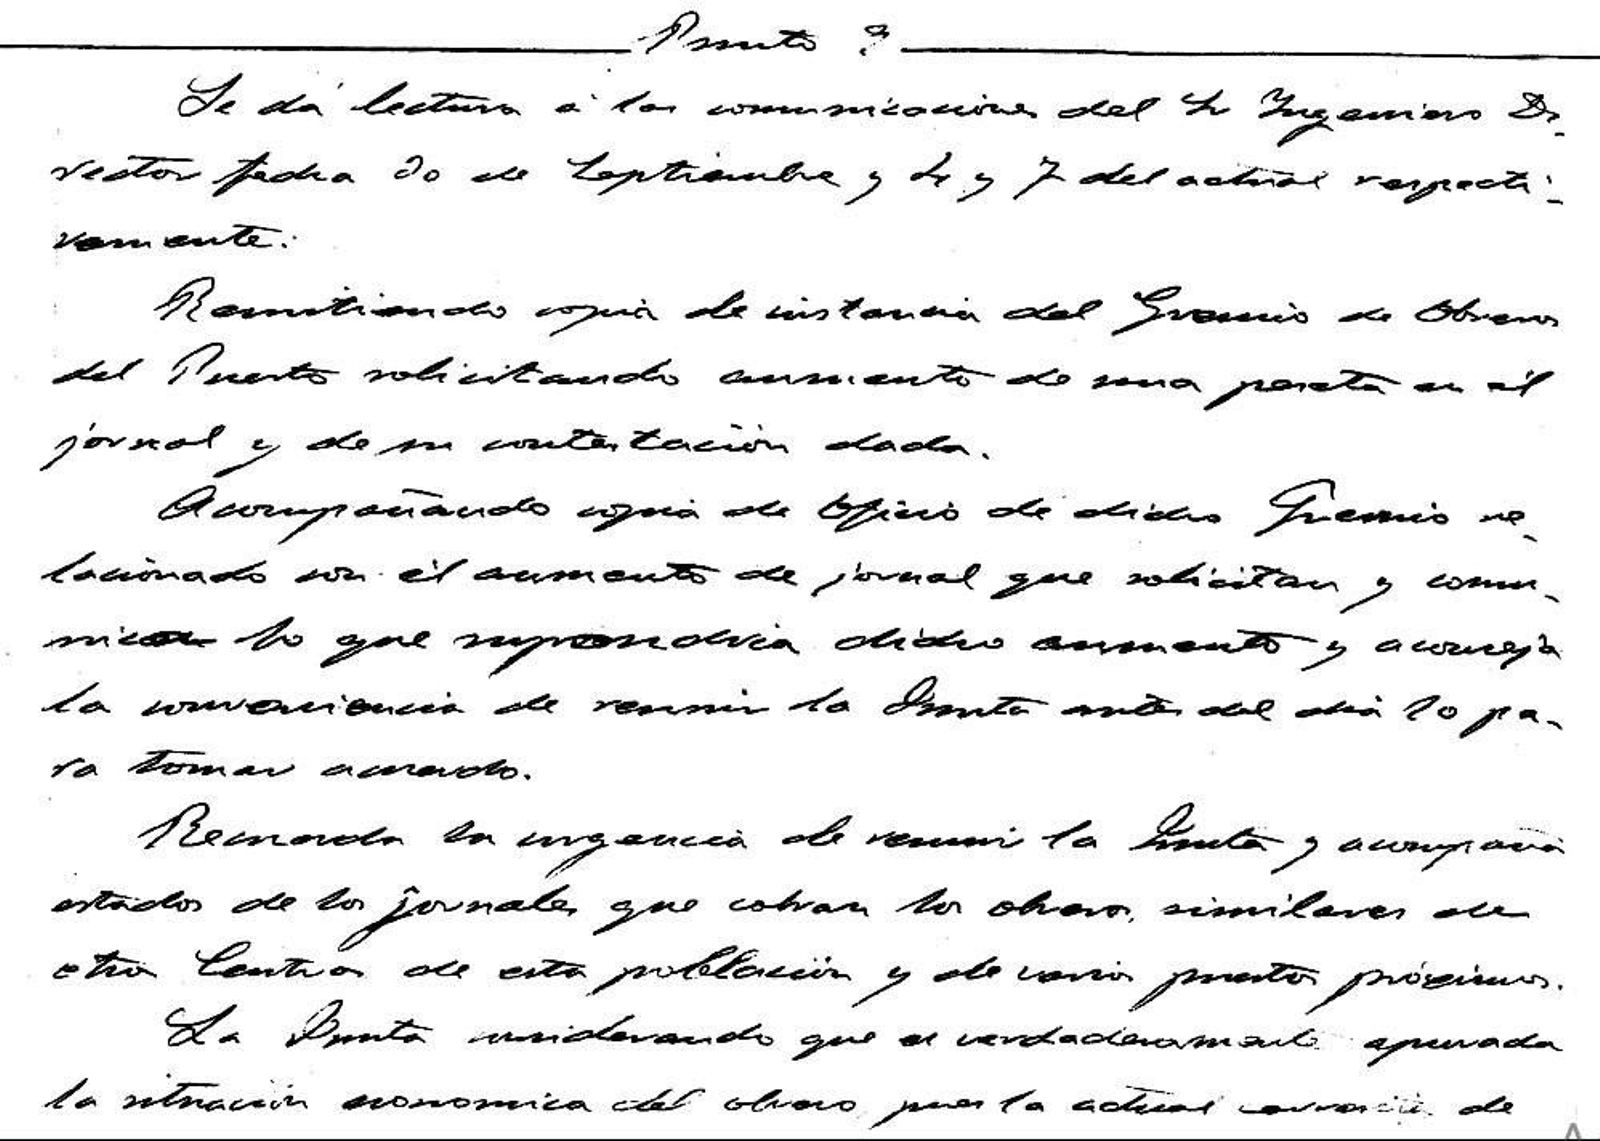 Punto 3
Se dá lectura á las comunicaciones del Sr Ingeniero Di-
rector fecha 30 de Septiembre y 4 y 7 del actual respecti-
vamente:
Remitiendo copia de instancia del Gremio de Obreros
del Puerto solicitando aumento de una peseta en el
jornal y de su contestación dada.
Acompañando copia de Oficio de dicho Gremio re-
lacionado con el aumento de jornal que solicitan y comu-
nica lo que supondría dicho aumento y aconseja
la conveniencia de reunir la Junta antes del dia 10 pa-
ra tomar acuerdo.
Recuerda la urgencia de reunir la Junta y acompaña
estados de los jornales que cobran los obreros similares de
otros Centros de esta población y de varios puertos próximos.
La Junta considerando que es verdaderamente apurada
la situación economica del obrero, pues la actual carestia de